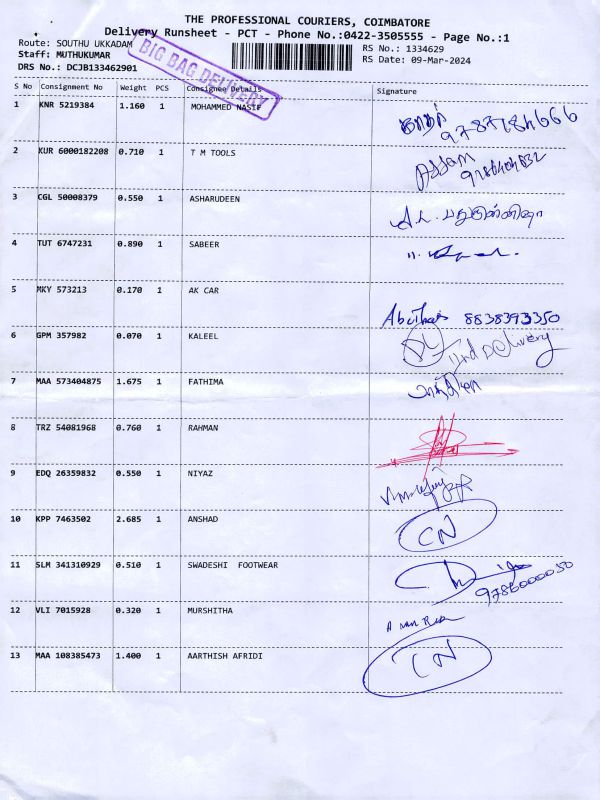 THE PROFESSIONAL COURIERS, COIMBATORE
Delivery Runsheet - PCT - Phone No.:0422-3505555 - Page No.:1
Route: SOUTHU UKKADAM
RS No.: 1334629
Staff: MUTHUKUMAR
RS Date: 09-Mar-2024
DRS No.: DCJB133462901
BIG BAG DELIVERY
S No Consignment No Weight PCS Consignee Details Signature
1 KNR 5219384 1.160 1 MOHAMMED NASIF
2 KUR 6000182208 0.710 1 T M TOOLS
Assam
3 CGL 50008379 0.550 1 ASHARUDEEN
4 TUT 6747231 0.890 1 SABEER
5 MKY 573213 0.170 1 AK CAR
8838393350
6 GPM 357982 0.070 1 KALEEL
IInd Delivery
7 MAA 573404875 1.675 1 FATHIMA
8 TRZ 54081968 0.760 1 RAHMAN
9 EDQ 26359832 0.550 1 NIYAZ
10 KPP 7463502 2.685 1 ANSHAD
CN
11 SLM 341310929 0.510 1 SWADESHI FOOTWEAR
12 VLI 7015928 0.320 1 MURSHITHA
13 MAA 108385473 1.400 1 AARTHISH AFRIDI
CN